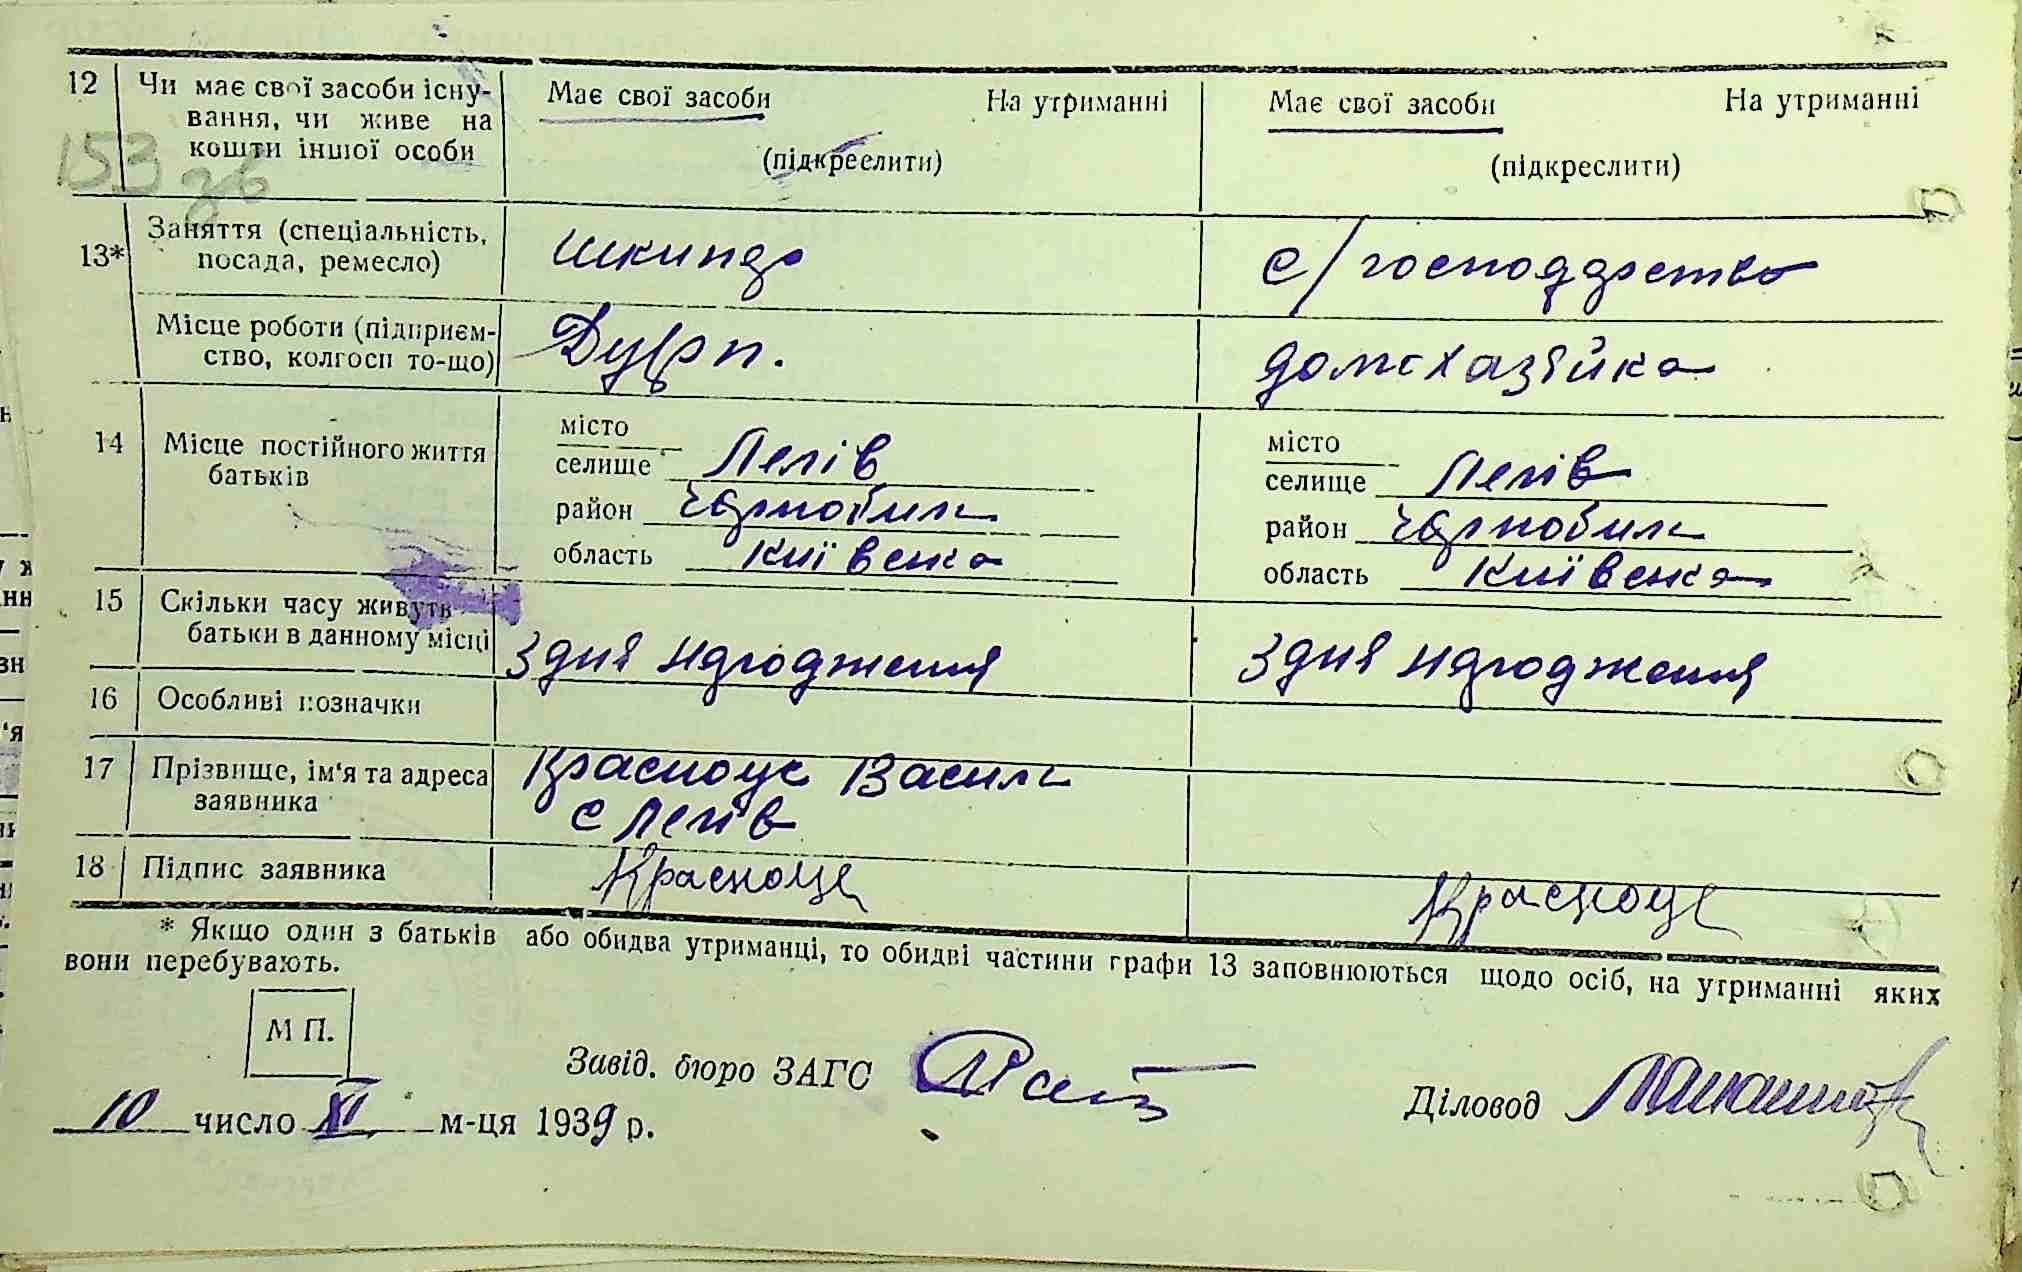 12 Чи має свої засоби існу-
вання, чи живе на
кошти іншої особи
Має свої засоби На утриманні
(підкреслити)
Має свої засоби На утриманні
(підкреслити)
153 зв
13* Заняття (спеціальність,
посада, ремесло)
шкипер
с/господарство
Місце роботи (підприєм-
ство, колгосп то-що)
домохазяйка
14 Місце постійного життя
батьків
місто
селище Лелів
район Чорнобиль
область Київська
місто
селище Лелів
район Чорнобиль
область Київська
15 Скільки часу живуть
батьки в данному місці
З дня народження
З дня народження
16 Особливі позначки
17 Прізвище, ім'я та адреса
заявника
Красноус Василь
с Лелів
18 Підпис заявника
Красноус
Красноус
* Якщо один з батьків або обидва утриманці, то обидві частини графи 13 заповнюються щодо осіб, на утриманні яких
вони перебувають.
М П.
Завід. бюро ЗАГС
Діловод
10 число XI м-ця 1939 р.